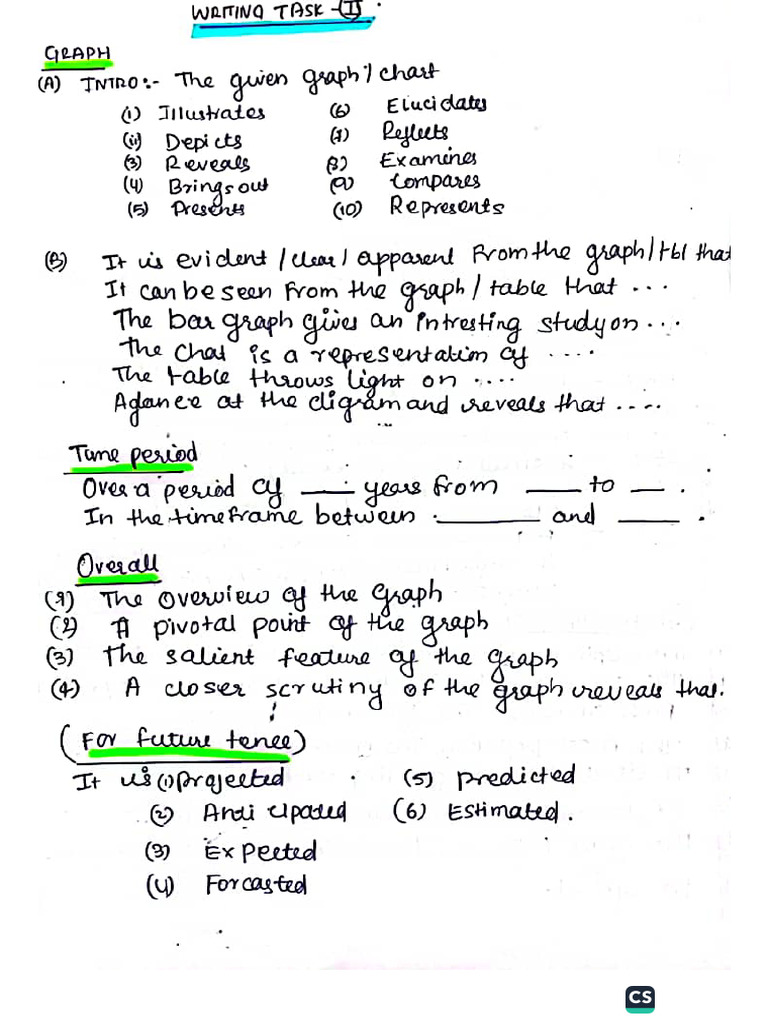 WRITING TASK - (I).
GRAPH
(A) INTRO:- The given graph / chart
(1) Illustrates (6) Elucidates
(ii) Depicts (7) Reflects
(3) Reveals (8) Examines
(4) Brings out (9) Compares
(5) Presents (10) Represents
(B) It is evident / clear / apparent From the graph / tbl that
It can be seen from the graph / table that ...
The bar graph gives an intresting study on...
The chat is a representation of ....
The table throws light on ....
A glance at the digram and reveals that ....
Time period
Over a period of ___ years from ___ to __ .
In the timeframe between ______ and ___ .
Overall
(1) The overview of the Graph
(2) A pivotal point of the graph
(3) The salient feature of the graph
(4) A closer scrutiny of the graph reveals that.
(For future tence)
It is (1) projected (5) predicted
(2) Anticipated (6) Estimated.
(3) Expected
(4) Forcasted
CS